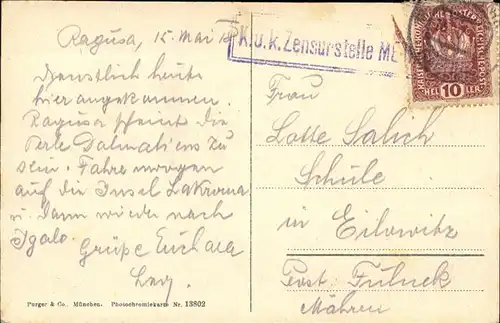 Ragusa, 15 Mai 18
K.u.k. Zensurstelle
Dienstlich heute
hier angekommen.
Ragusa scheint die
Perle Dalmatiens zu
sein. Fahre morgen
auf die Insel Lakroma
u. dann wieder nach
Igalo.
Grüße
HELLER 10
Frau
Lotte Salich
Schule
in Eilowitz
Post Fulnek
Mähren
Purger & Co. München. Photochromiekarte Nr. 13802